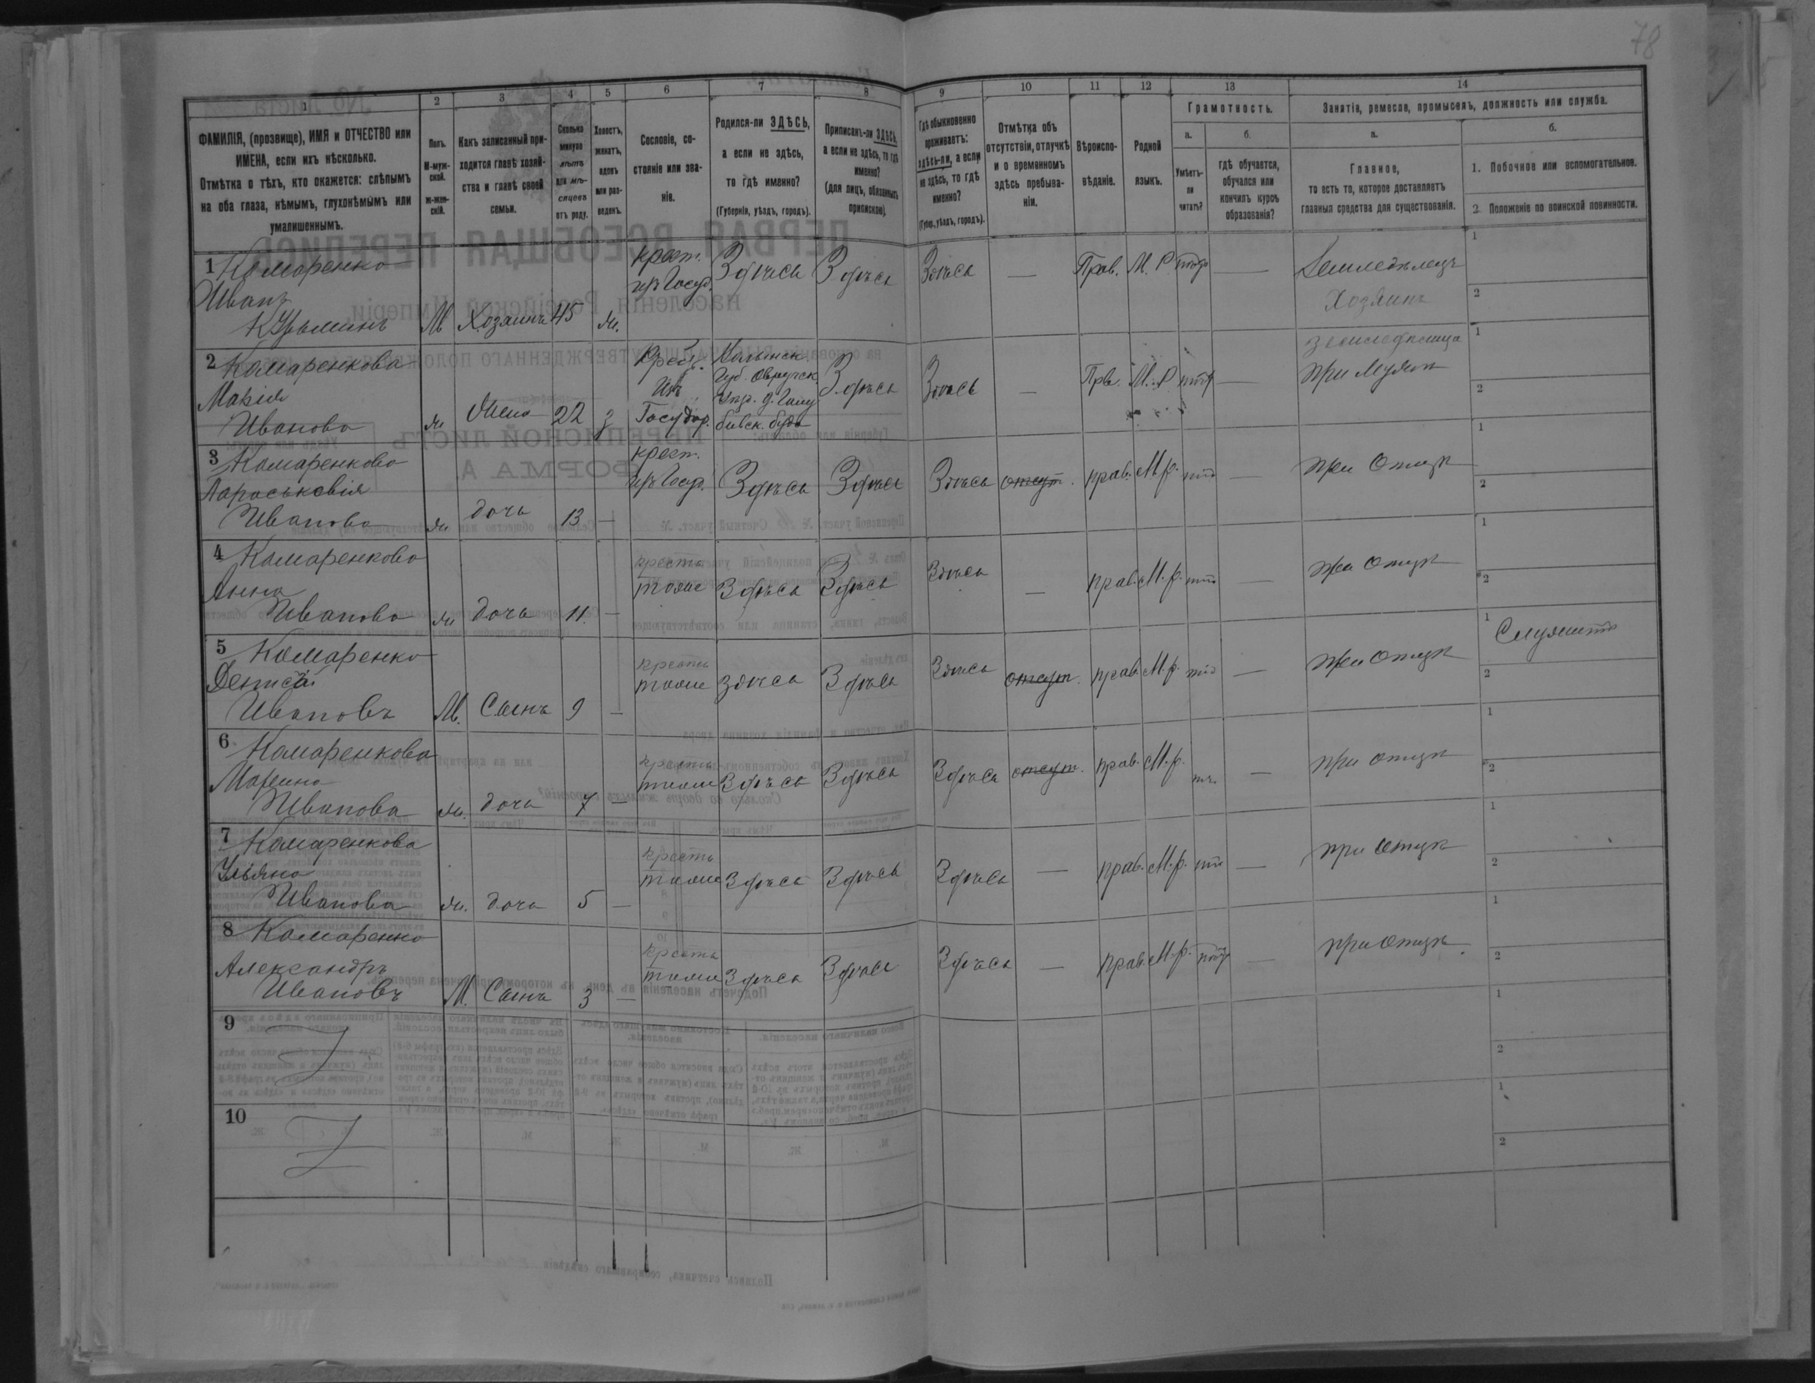 78
1 2 3 4 5 6 7 8 9 10 11 12 13 14
ФАМИЛІЯ, (прозвище), ИМЯ и ОТЧЕСТВО или
ИМЕНА, если ихъ нѣсколько.
Отмѣтка о тѣхъ, кто окажется: слѣпымъ
на оба глаза, нѣмымъ, глухонѣмымъ или
умалишеннымъ.
Полъ.
М-муж-
ской.
ж-жен-
скій.
Какъ записанный при-
ходится главѣ хозяй-
ства и главѣ своей
семьи.
Сколько
минуло
лѣтъ
или мѣ-
сяцевъ
отъ роду.
Холостъ,
женатъ,
вдовъ
или раз-
веденъ.
Сословіе, со-
стояніе или зва-
ніе.
Родился-ли ЗДѢСЬ,
а если не здѣсь,
то гдѣ именно?
(Губернія, уѣздъ, городъ).
Приписанъ-ли ЗДѢСЬ,
а если не здѣсь, то гдѣ
именно?
(для лицъ, обязанныхъ
припискою).
Гдѣ обыкновенно
проживаетъ:
здѣсь-ли, а если
не здѣсь, то гдѣ
именно?
(Губер., уѣздъ, городъ).
Отмѣтка объ
отсутствіи, отлучкѣ
и о временномъ
здѣсь пребыва-
ніи.
Вѣроиспо-
вѣданіе.
Родной
языкъ.
Грамотность.
а.
Умѣетъ-
ли
читать?
б.
гдѣ обучается,
обучался или
кончилъ курсъ
образованія?
Занятія, ремесло, промыселъ, должность или служба.
а.
Главное,
то есть то, которое доставляетъ
главныя средства для существованія.
б.
1. Побочное или вспомогательное.
2. Положеніе по воинской повинности.
1 Комаренко
Иванъ
Кузьминъ М Хозяинъ 45 ж.
крест.
изъ Госуд. Здѣсь Здѣсь Здѣсь — Прав. М. Р —
Земледѣлецъ
Хозяинъ
1
2
2 Комаренкова
Марія
Иванова ж Жена 22 з
Крест.
Изъ
Государ.
Волынск.
Губ. Овручск.
Здѣсь Здѣсь — Прв. М. Р —
земледѣлица
при мужѣ
1
2
3 Комаренкова
Параськовія
Иванова ж дочь 13 —
крест.
изъ Госуд. Здѣсь Здѣсь Здѣсь отсут. прав. М. р. —
при отцѣ
1
2
4 Комаренкова
Анна
Иванова ж дочь 11 —
кресть
тоже Здѣсь Здѣсь Здѣсь — прав. М. р. —
при отцѣ
1
2
5 Комаренко
Денисъ
Ивановъ М. Сынъ 9 —
кресть
тоже здѣсь Здѣсь Здѣсь отсут. прав. М. р. —
при отцѣ
1
2
6 Комаренкова
Марина
Иванова ж. дочь 7 —
кресть
тоже Здѣсь Здѣсь Здѣсь отсут. прав. М. р. —
при отцѣ
1
2
7 Комаренкова
Ульяна
Иванова ж. дочь 5 —
кресть
тоже Здѣсь Здѣсь Здѣсь — прав. М. р. —
при отцѣ
1
2
8 Комаренко
Александръ
Ивановъ М. Сынъ 3 —
кресть
тоже Здѣсь Здѣсь Здѣсь — прав. М. р. —
при отцѣ.
1
2
9
1
2
10
1
2